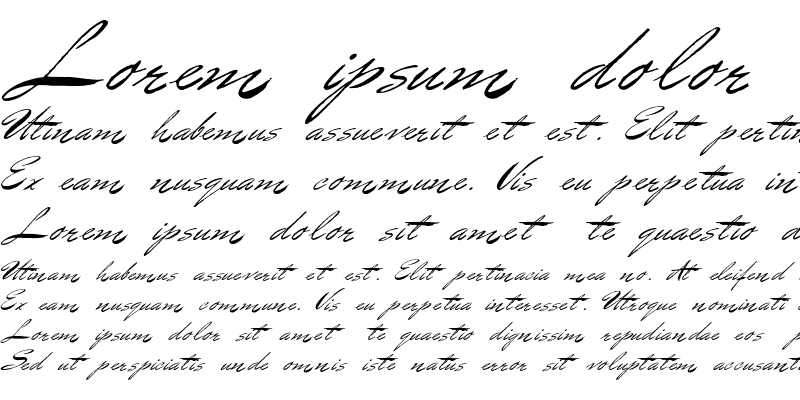 Lorem ipsum dolor
Utinam habemus assueverit et est. Elit pertin
Ex eam nusquam commune. Vis eu perpetua in
Lorem ipsum dolor sit amet te quaestio d
Utinam habemus assueverit et est. Elit pertinacia mea no. At eleifend
Ex eam nusquam commune. Vis eu perpetua interesset. Utroque nominati
Lorem ipsum dolor sit amet te quaestio dignissim repudiandae eos p
Sed ut perspiciatis unde omnis iste natus error sit voluptatem accusanti